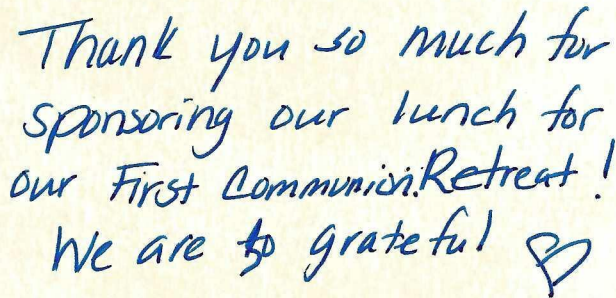 Thank you so much for
sponsoring our lunch for
our First Communion Retreat!
We are so grateful ♡